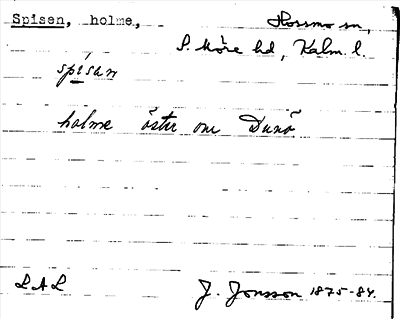 Spisen, holme, Hossmo sn,
S. Möre hd, Kalm. l.
spisan
holme öster om Dunö
LAL J. Jonsson 1875-84.